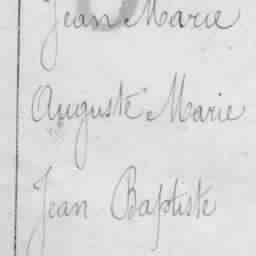 Jean Marie
Auguste Marie
Jean Baptiste